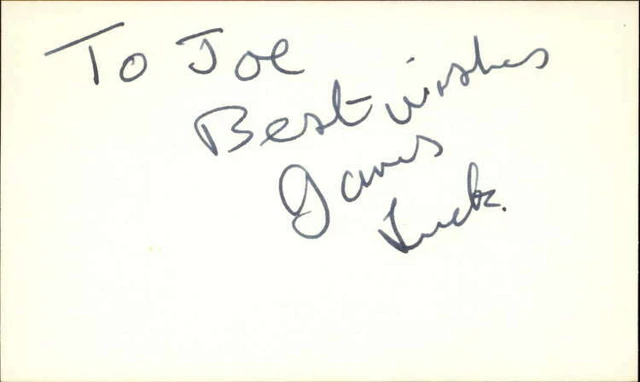 To Joe
Best wishes
James
Luck.